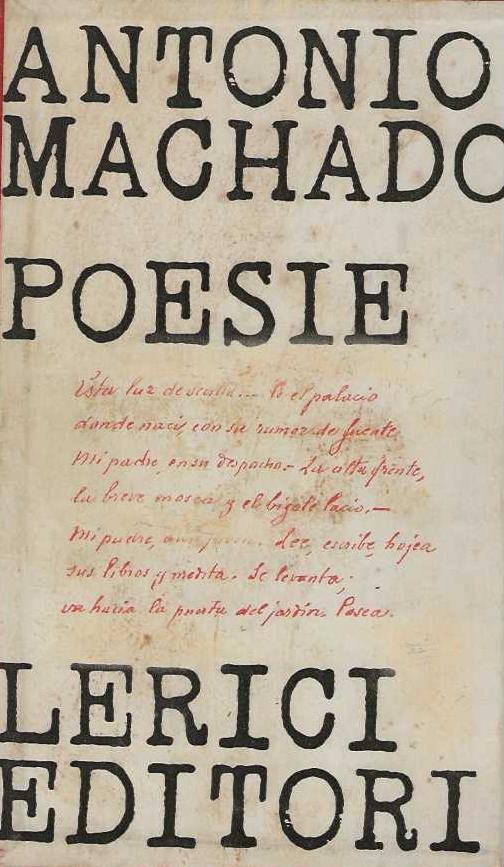 ANTONIO
MACHADO
POESIE
Esta luz de Sevilla... Es el palacio
donde nací, con su rumor de fuente.
Mi padre, en su despacho.- La alta frente,
la breve mosca y el bigote lacio.-
Mi padre, aun joven. Lee, escribe, hojea
sus libros y medita. Se levanta;
va hacia la puerta del jardín. Pasea.
LERICI
EDITORI